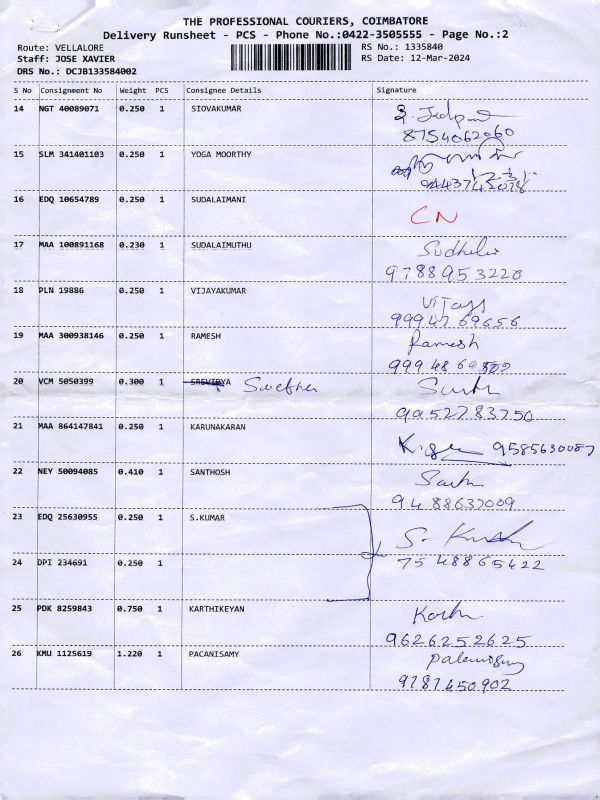 THE PROFESSIONAL COURIERS, COIMBATORE
Delivery Runsheet - PCS - Phone No.:0422-3505555 - Page No.:2
Route: VELLALORE RS No.: 1335840
Staff: JOSE XAVIER RS Date: 12-Mar-2024
DRS No.: DCJB133584002
S No Consignment No Weight PCS Consignee Details Signature
14 NGT 40089071 0.250 1 SIOVAKUMAR
8754062060
15 SLM 341401103 0.250 1 YOGA MOORTHY
16 EDQ 10654789 0.250 1 SUDALAIMANI
CN
17 MAA 100891168 0.230 1 SUDALAIMUTHU
9788953220
18 PLN 19886 0.250 1 VIJAYAKUMAR
Vijay
9994769656
19 MAA 300938146 0.250 1 RAMESH Ramesh
20 VCM 5050399 0.300 1 SREVIDYA Swetha
9952783750
21 MAA 864147841 0.250 1 KARUNAKARAN
9585630087
22 NEY 50094085 0.410 1 SANTHOSH
9488637009
23 EDQ 25630955 0.250 1 S.KUMAR
S. Kumar
24 DPI 234691 0.250 1 7548865422
25 PDK 8259843 0.750 1 KARTHIKEYAN
9626252625
26 KMU 1125619 1.220 1 PACANISAMY
9787450902